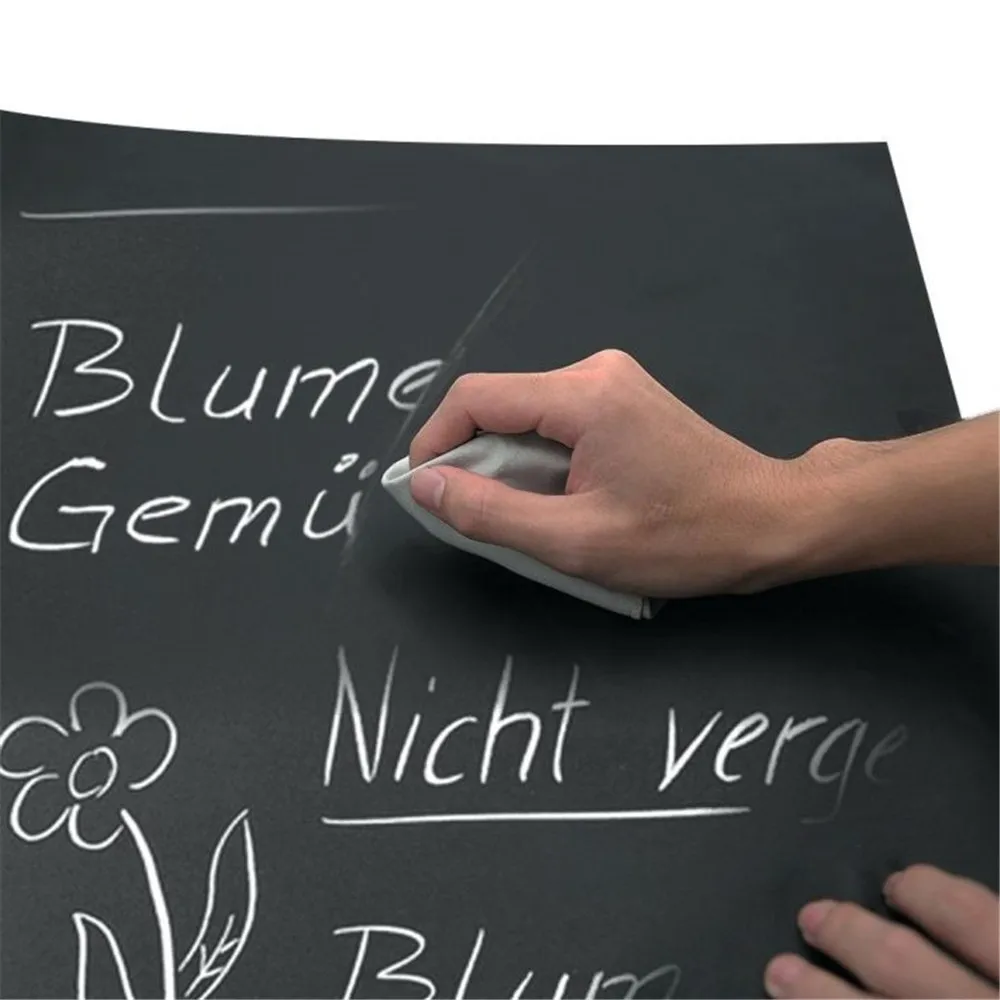 Blume
Gemü
Nicht verge
Blum